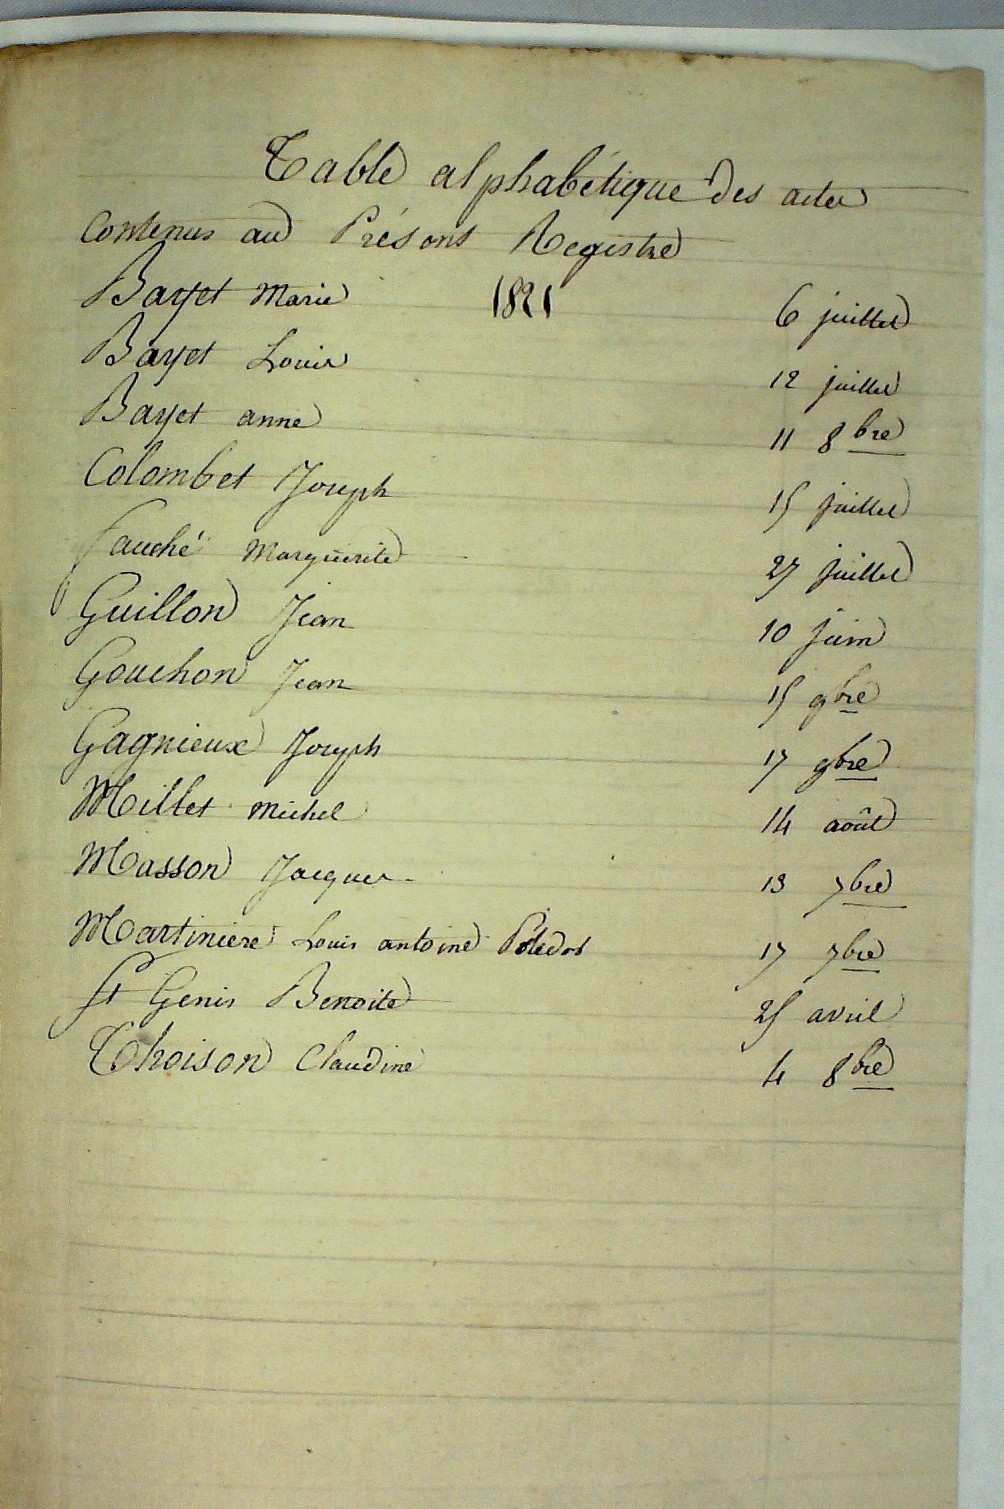 Table alphabétique des actes
Contenus au Présent Registre
Bayet Marie 1821 6 juillet
Bayet Louis 12 juillet
Bayet anne 11 8bre
Colombet Joseph 15 juillet
Fauché Marguerite 27 juillet
Guillon Jean 10 juin
Gouchon Jean 15 9bre
Gagnieux Joseph 17 9bre
Millet Michel 14 août
Masson Jacques 13 7bre
Martiniere Louis antoine 17 7bre
St Genis Benoite 25 avril
Thoison Claudine 4 8bre